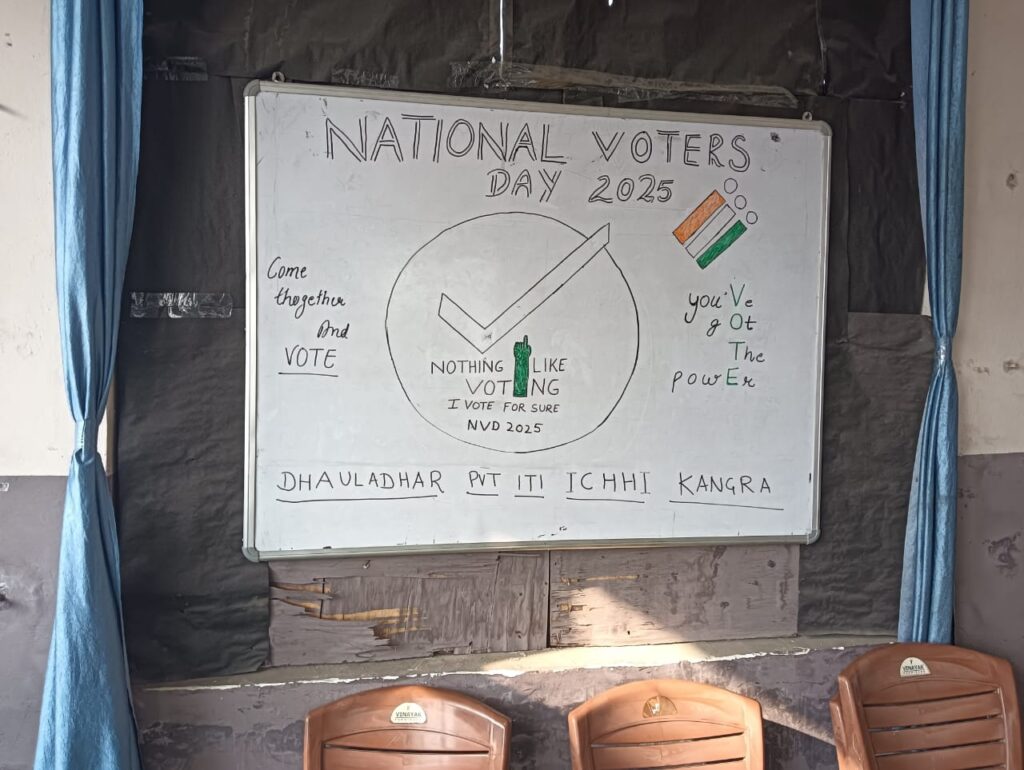 NATIONAL VOTERS
DAY 2025
Come
thogether
And
VOTE
NOTHING LIKE
VOTING
I VOTE FOR SURE
NVD 2025
you'Ve
gOt
The
powEr
DHAULADHAR PVT ITI ICHHI KANGRA
VINAYAK
VINAYAK